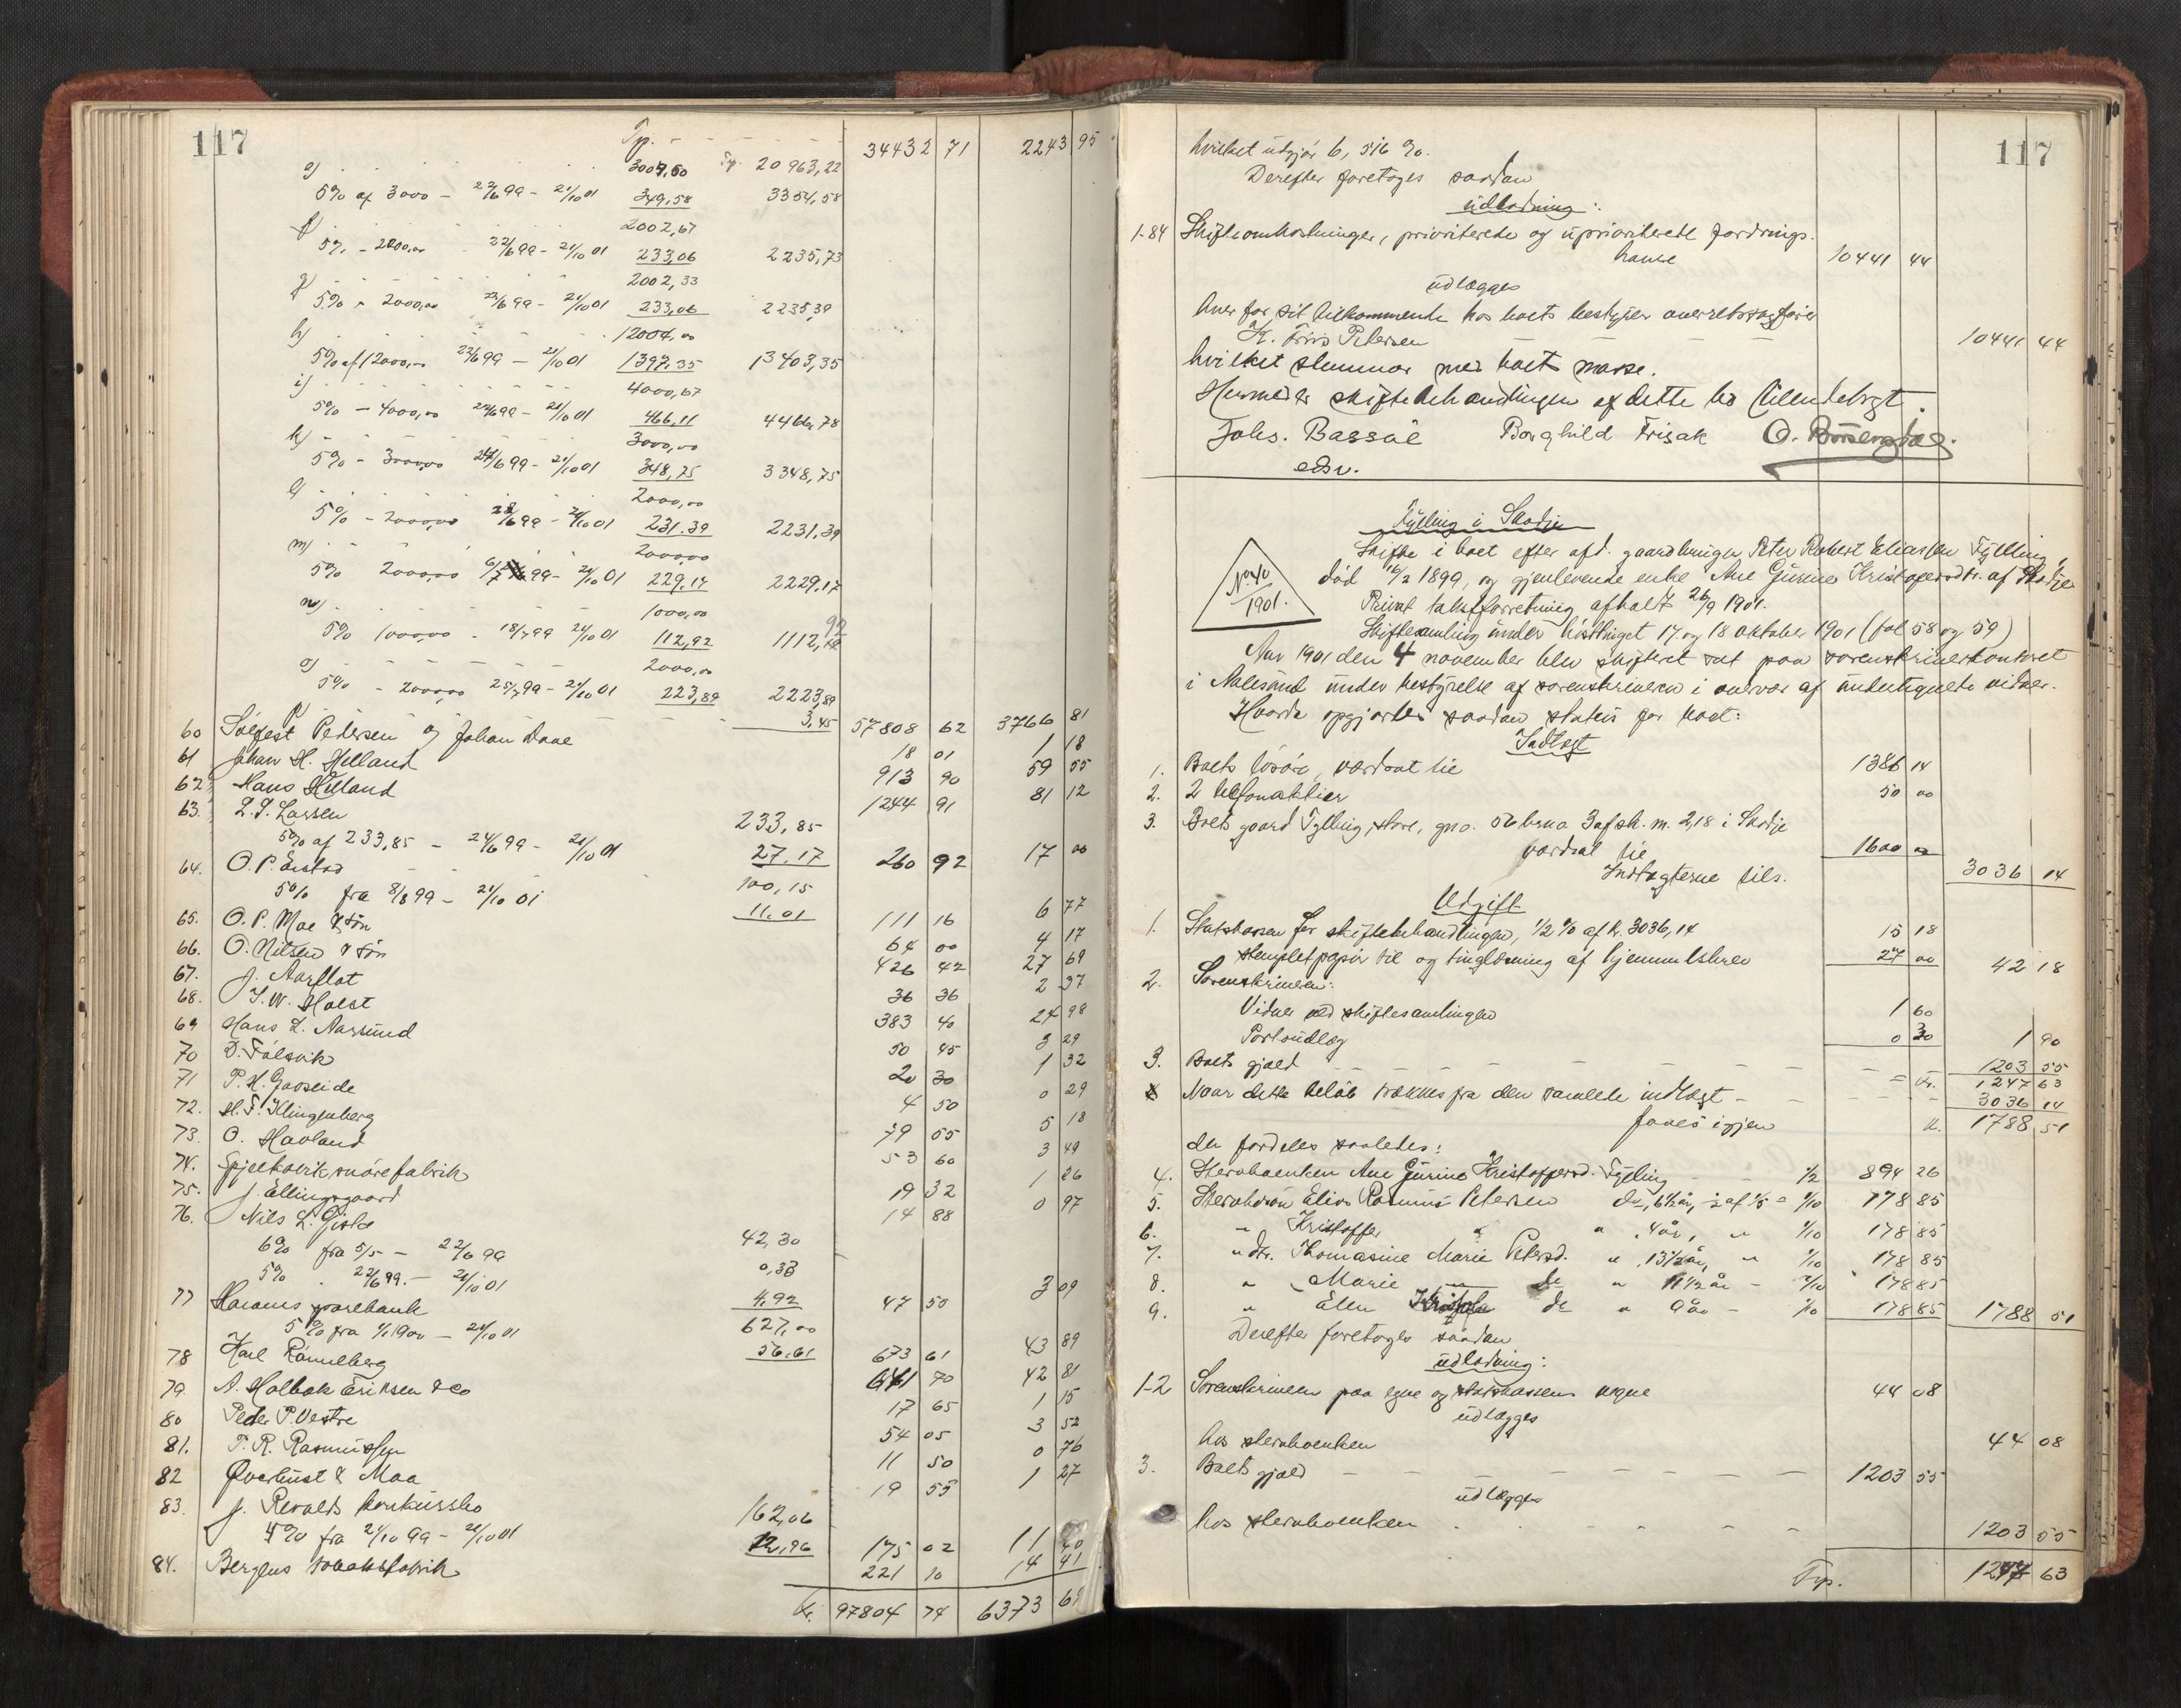 117
Tp. - - - - - 34432 71 2243 95
e) 3004,50 Tp. 20963,22
5% af 3000 - 22/6 99 - 21/10 01 349.58 3354,58
f) 2002,67
5% - 2000,00 22/6 99 - 21/10 01 233,06 2235,73
g) 2002,33
5% - 2000,00 22/6 99 - 21/10 01 233,06 2235,39
h) 12004,00
5% af 12000,00 22/6 99 - 21/10 01 1397.35 13403,35
i) 4000,67
5% - 4000,00 22/6 99 - 21/10 01 466,11 4466,78
k) 3000,00
5% - 3000,00 24/6 99 - 21/10 01 348,75 3348,75
l) 2000,00
5% - 2000,00 28/6 99 - 21/10 01 231.39 2231,39
m) 2000,00
5% 2000,00 6/7 99 - 21/10 01 229,17 2229,17
n) 1000,00
5% 1000,00 - 18/7 99 21/10 01 112,92 1112,92
o) 2000,00
5% - 2000,00 25/7 99 - 21/10 01 223,89 2223,89
p) 3,45 57808 62 3766 81
60 Sølfest Pedersen og Johan Daae 18 01 1 18
61 Johan H. Helland 913 90 59 55
62 Hans Helland 1244 91 81 12
63. L. J. Larsen 233,85
5% af 233,85 - 24/6 99 - 21/10 01 27.17 260 92 17 00
64. O. P. Eistad 100,15
5% fra 8/8 99 - 21/10 01 11.01 111 16 6 77
65. O. P. Moe & Søn 64 00 4 17
66. O. Nilsen & Søn 426 42 27 69
67. J. Aarflot 36 36 2 37
68. J. W. Holst 383 40 24 98
69 Hans L. Aarsund 50 45 3 29
70 D. Falsvik 20 30 1 32
71 P. H. Gjøseide 4 50 0 29
72. H. F. Klingenberg 79 55 5 18
73. O. Havland 53 60 3 49
74. Spjelkavik snørefabrik 19 32 1 26
75. J. Ellingsgaard 14 88 0 97
76. Nils L. Giske 42,30
6% fra 5/5 - 22/6 99 0,33
5% - 22/6 99 - 21/10 01 4,92 47 50 3 09
77 Harams sparebank 627,00
5% fra 1/1 1900 - 21/10 01 56.61 673 61 43 89
78 Karl Rønneberg 661 70 42 81
79 A. Holbek Eriksen & Co 17 65 1 15
80 Peder P. Vestre 54 05 3 52
81. T. R. Rasmussen 11 50 0 76
82 Qverhust & Moa 19 55 1 27
83. J. Revolds konkursbo 162,06
4% fra 21/10 99 - 21/10 01 12,96 175 02 11 40
84. Bergens tobaksfabrik 221 10 14 41
Kr. 97804 74 6373 68
117
hvilket udgjør 6,516 %.
Derefter foretoges saadan
udlodning:
1-84 Skifteomkostninger, prioriterede og uprioriterede fordrings-
havere 10441 44
udlægges
hver for sit tilkommende hos boets bestyrer overretssagfører
K. Friis Petersen - - - 10441 44
hvilket stemmer med boets masse.
Hermed er skiftebehandlingen af dette bo tilendebragt.
Johs. Bassøe Borghild Frisak
edsv.
Fylling i Skodje
No 40
1901.
Skifte i boet efter afd. gaardbruger Peter Robert Eliassen Fylling,
død 16/2 1899, og gjenlevende enke Ane Gurine Kristoffersdtr. af Skodje
Privat takstforretning afholdt 26/9 1901.
Skiftesamling under høsttinget 17. og 18 oktober 1901 (fol 58 og 59)
Aar 1901 den 4 november blev skifteret sat paa sorenskriverkontoret
i Aalesund under bestyrelse af sorenskriveren i overvær af undertegnede vidner.
Hvorda opgjortes saadan status for boet:
Indtægt
1. Boets løsøre, værdsat til 1386 14
2. 2 telefonaktier 50 00
3. Boets gaard Fylling, store, gno. 56 brno 3 af sk. m. 2,18 i Skodje
værdsat til 1600 00
Indtægterne tils. 3036 14
Udgift
1. Statskassen for skiftebehandlingen, 1/2 % af k. 3036,14 15 18
stemplet papir til og tinglæsning af hjemmelsbrev 27 00 42 18
2. Sorenskriveren:
Vidner ved skiftesamlingen 1 60
Portoudlæg 0 30 1 90
3. Boets gjæld - - - - - 1203 55
- kr. 1247 63
Naar dette beløb trækkes fra den samlede indtægt - - - 3036 14
faaes igjen k. 1788 51
der fordeles saaledes:
4. Stervboenken Ane Gurine Kristoffersd. Fylling - - 1/2 894 26
5. Stervbosøn Elias Rasmus Petersen do, 6 1/2 aar, 1/2 af 1/5 = 1/10 178 85
6. " Kristoffer " " 4 aar, " 1/10 178 85
7. " dtr. Thomasine Marie Petersd. " 13 1/2 aar, " 1/10 178 85
8. " Marie " do " 11 1/2 aar - 1/10 178 85
9. " Ellen do " 9 aar - 1/10 178 85 1788 51
Derefter foretoges saadan
udlodning:
1-2 Sorenskriveren paa egne og statskassens vegne 44 08
udlægges
hos stervboenken 44 08
3. Boets gjæld - - - - - 1203 55
udlægges
hos stervboenken - - - - 1203 55
Trp. 1247 63